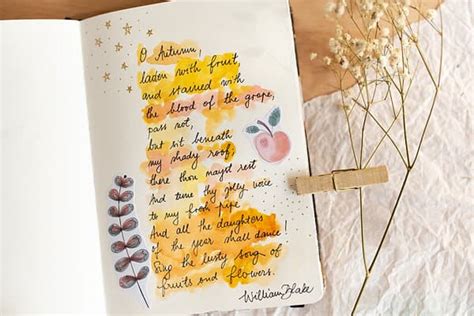 O Autumn,
laden with fruit,
and stained with
the blood of the grape,
pass not,
but sit beneath
my shady roof,
there thou mayst rest
And tune thy jolly voice
to my fresh pipe
And all the daughters
of the year shall dance!
Sing the lusty song of
fruits and flowers.
William Blake